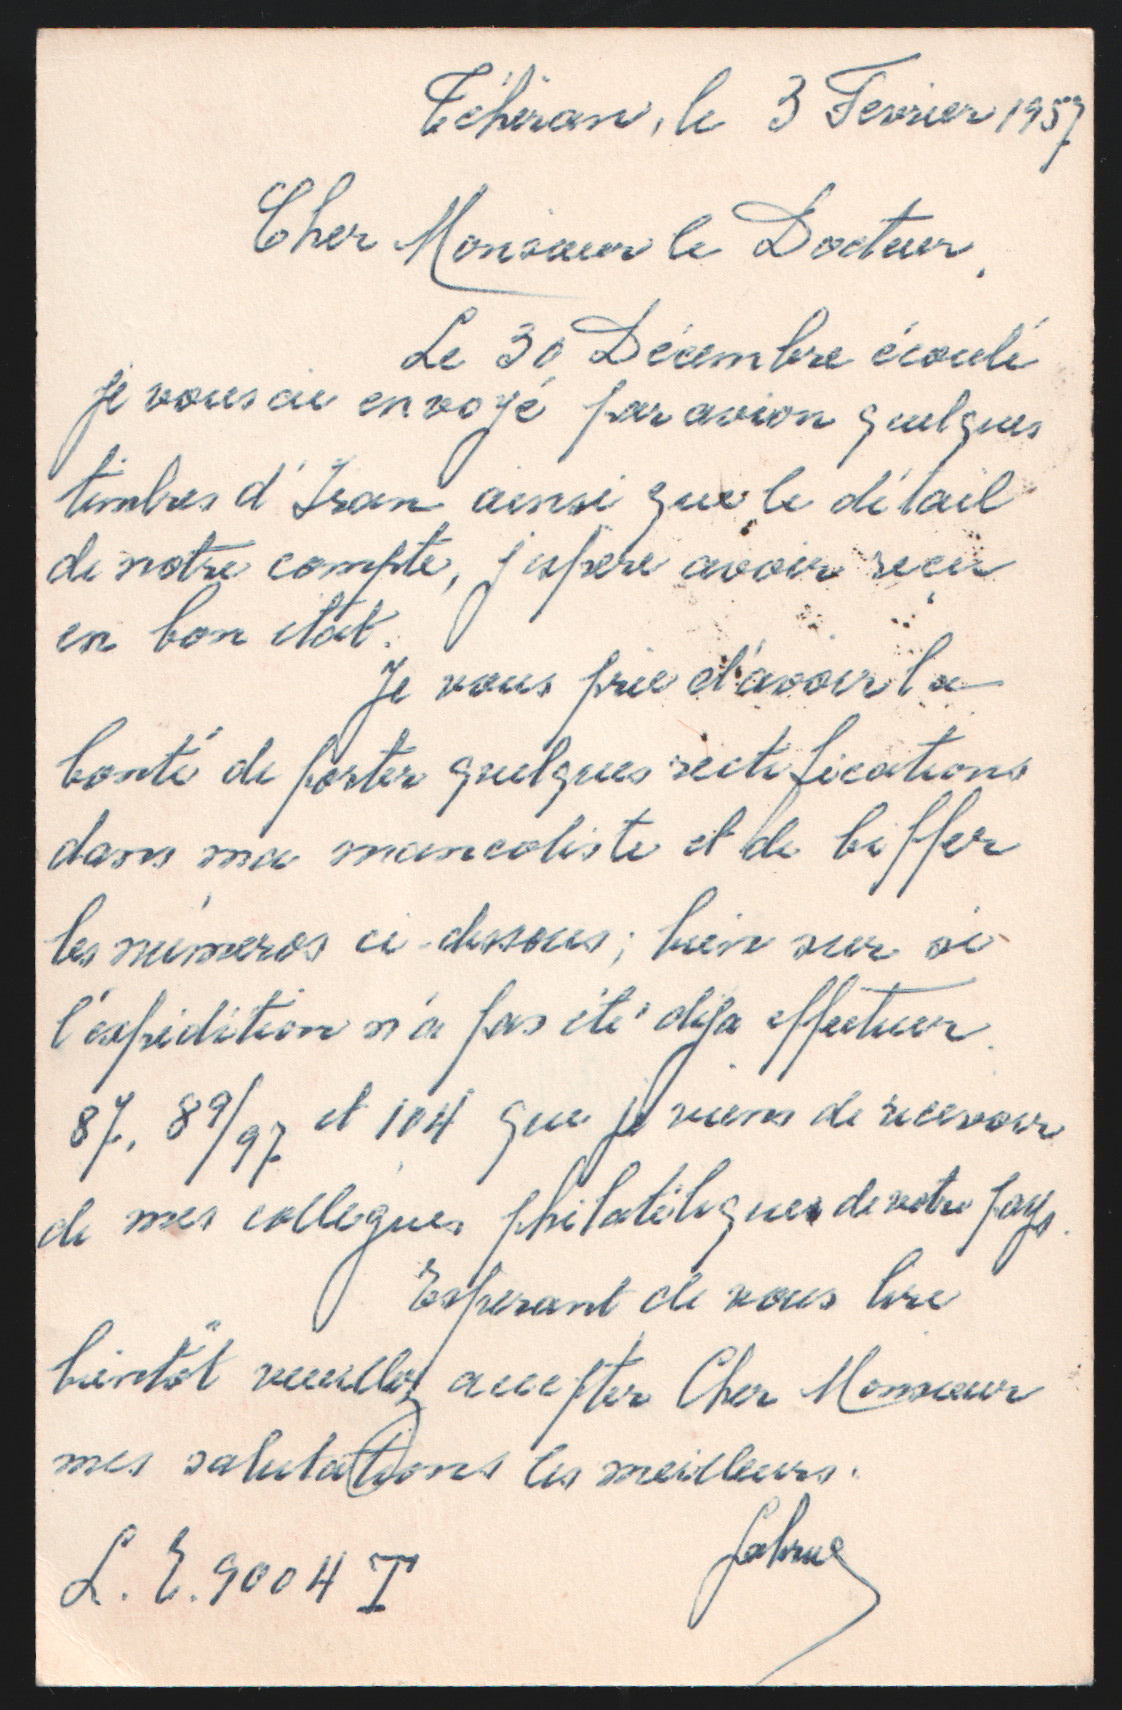 Téhéran, le 3 Fevrier 1957
Cher Monsieur le Docteur,
Le 30 Décembre écoulé
je vous ai envoyé par avion quelques
timbres d'Iran ainsi que le détail
de notre compte, j'espere avoir reçu
en bon état.
Je vous prie d'avoir la
bonté de porter quelques rectifications
dans ma mancoliste et de biffer
les numéros ci-dessous; bien sur si
l'éxpédition n'a pas été déja effectuer.
87, 89/97 et 104 que je viens de recevoir
de mes collègues philatéliques de votre pays.
Esperant de vous lire
bientôt veuillez accepter Cher Monsieur
mes salutations les meilleurs.
L. E. 9004 T